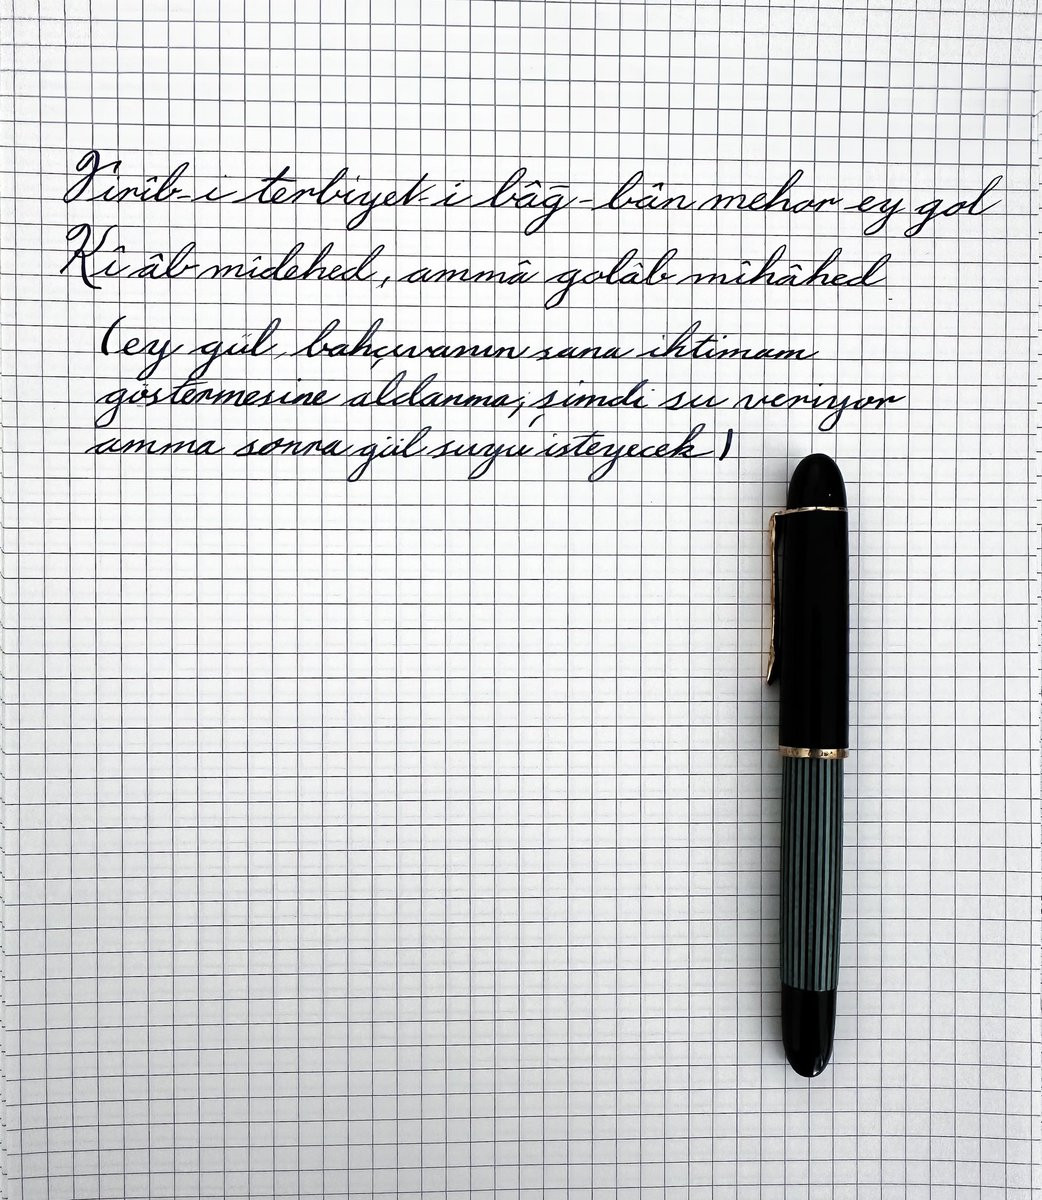 Firîb-i terbiyet-i bâğ-bân mehor ey gol
Kî âb mîdehed, ammâ golâb mîhâhed
(ey gül, bahçıvanın sana ihtimam
göstermesine aldanma; şimdi su veriyor
amma sonra gül suyu isteyecek)